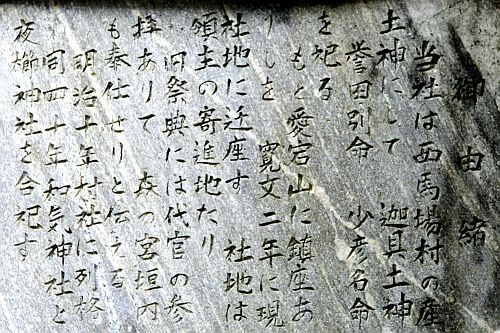 御由緒
当社は西馬場村の産
土神にして 迦具土神
誉田別命 少彦名命
を祀る
もと愛宕山に鎮座あ
りしを 寛文二年に現
社地に迁座す 社地は
領主の寄進地たり
旧祭典には代官の参
拝ありて 森の宮垣内
も奉仕せりと伝える
明治十年村社に列格
同四十年和気神社と
夜櫛神社を合祀す